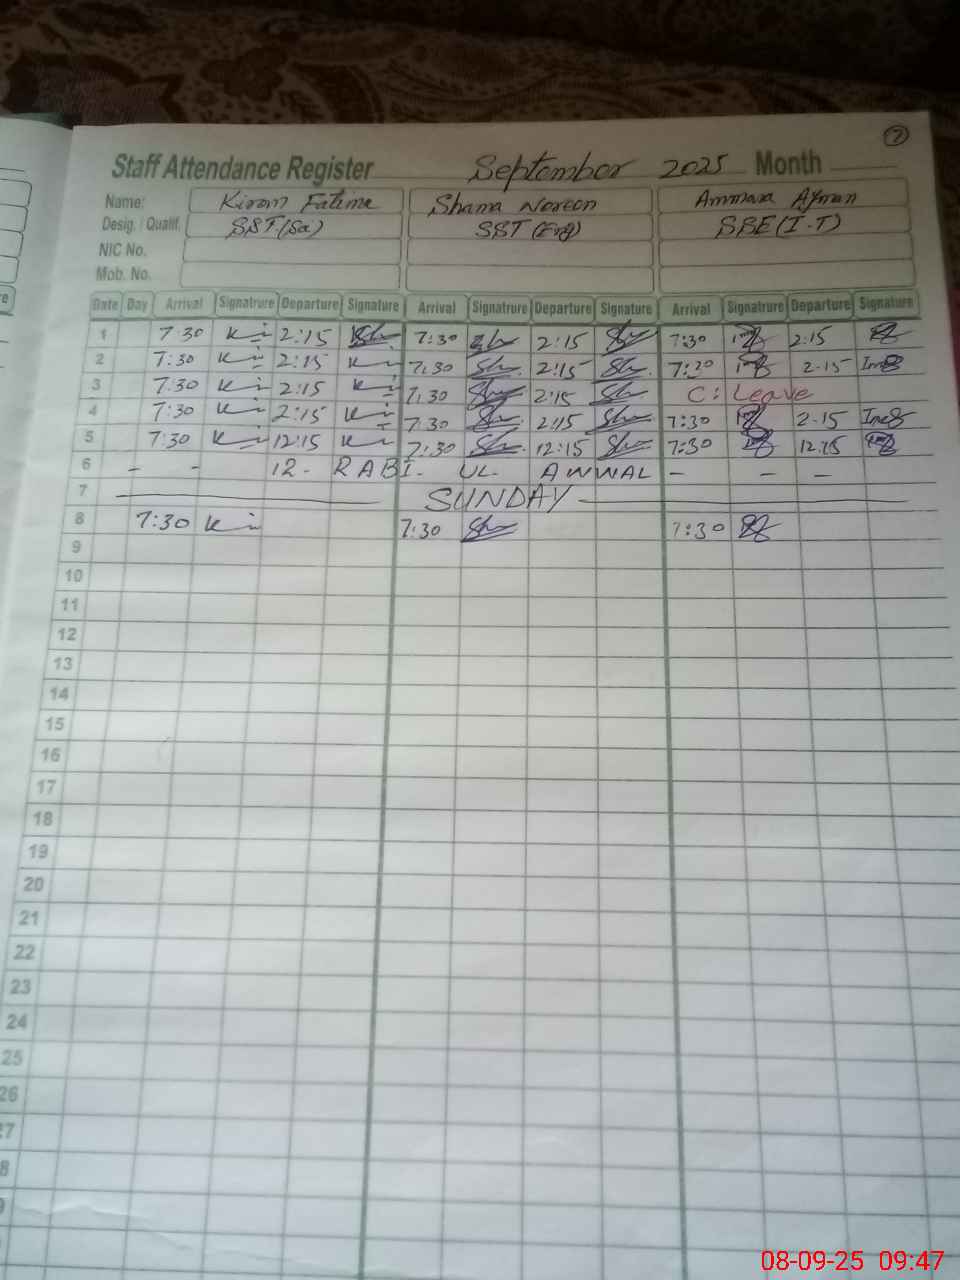 2
Staff Attendance Register September 2025 Month
Name: Kiran Fatima Shama Noreen Ammara Ayman
Desig. / Qualif. SST (Sc) SST (Eng) SSE (I.T)
NIC No.
Mob. No.
Date Day Arrival Signatrure Departure Signature Arrival Signatrure Departure Signature Arrival Signatrure Departure Signature
1 7:30 2:15 7:30 2:15 7:30 2:15
2 7:30 2:15 7:30 2:15 7:30 2-15
3 7:30 2:15 7:30 2:15 C: Leave
4 7:30 2:15 7:30 2:15 7:30 2-15
5 7:30 12:15 7:30 12:15 7:30 12:15
6 - - 12 - RABI - UL - AWWAL - - -
7 SUNDAY
8 7:30 7:30 7:30
9
10
11
12
13
14
15
16
17
18
19
20
21
22
23
24
25
26
27
8
9
08-09-25 09:47